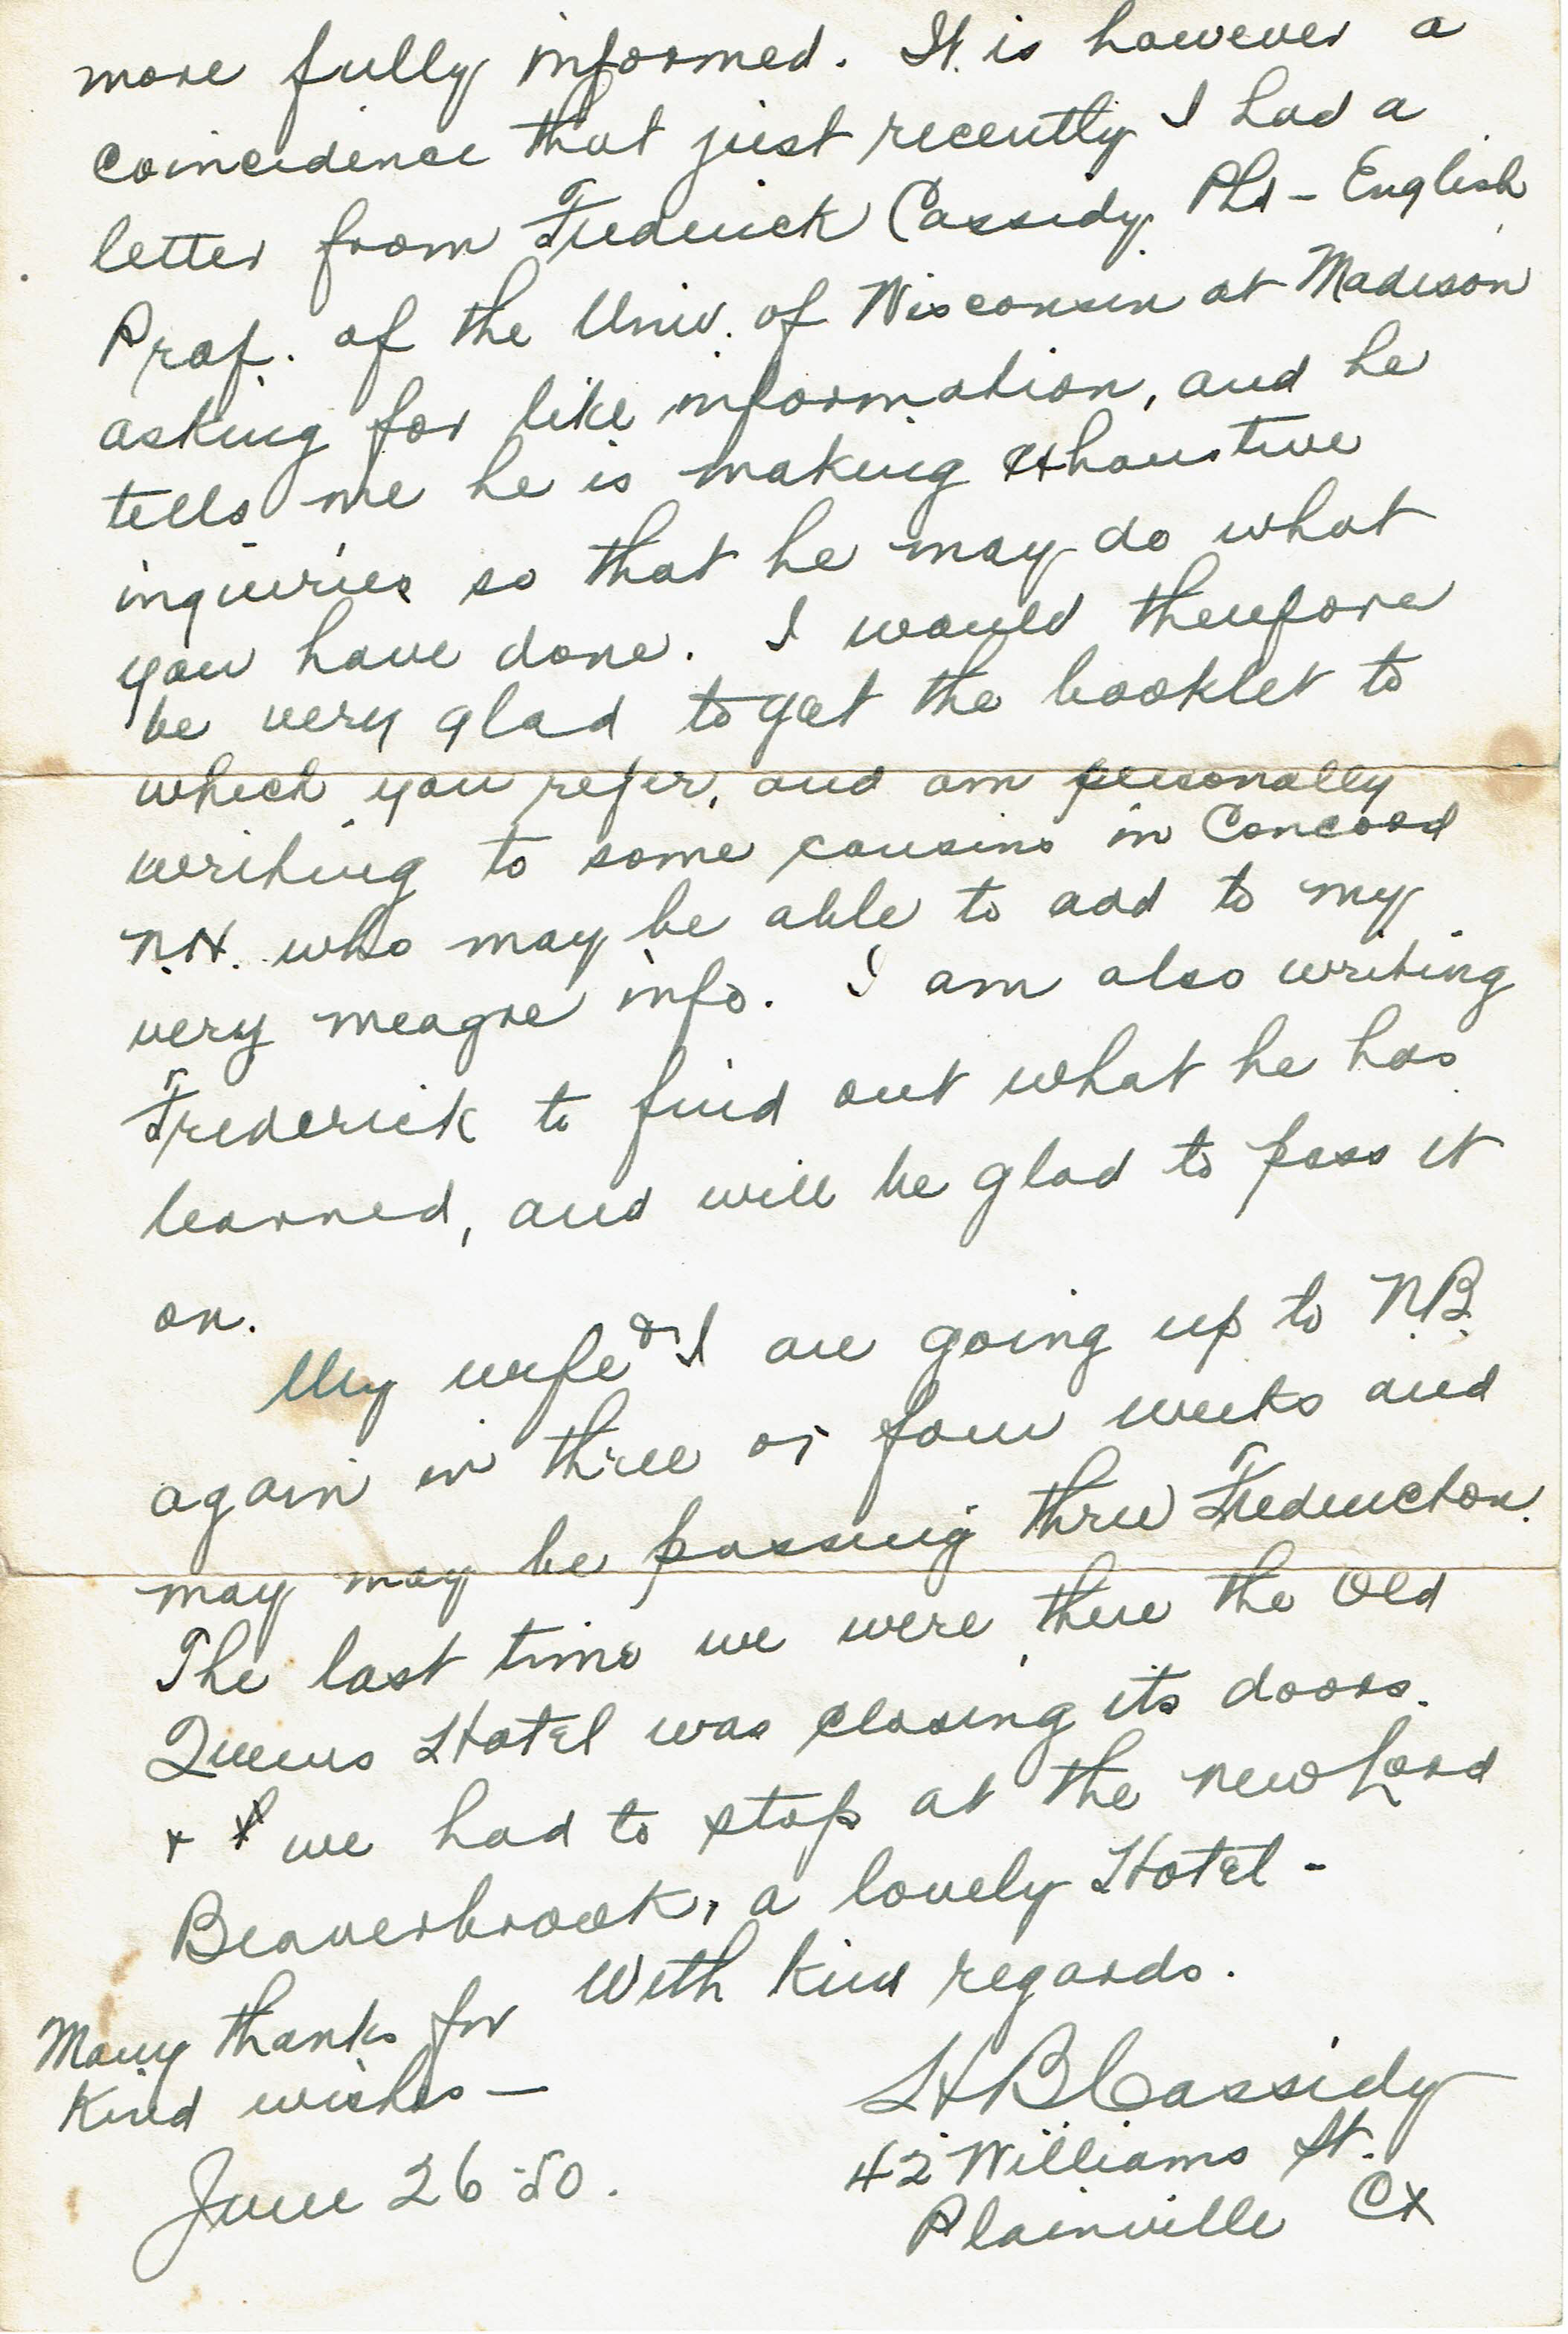 more fully informed. It is however a
coincidence that just recently I had a
letter from Frederick Cassidy Phd - English
Prof. of the Univ. of Wisconsin at Madison
asking for like information, and he
tells me he is making exhaustive
inquiries so that he may do what
you have done. I would therefore
be very glad to get the booklet to
which you refer, and am personally
writing to some cousins in Concord
N.H. who may be able to add to my
very meagre info. I am also writing
Frederick to find out what he has
learned, and will be glad to pass it
on.
My wife & I are going up to N.B.
again in three or four weeks and
may may be passing thru Fredericton.
The last time we were there the Old
Queens Hotel was closing its doors.
+ we had to stop at the new Lord
Beaverbrook, a lovely Hotel -
With kind regards.
Many thanks for
Kind wishes —
H B Cassidy
42 Williams St.
Plainville Ct
June 26 - 50.